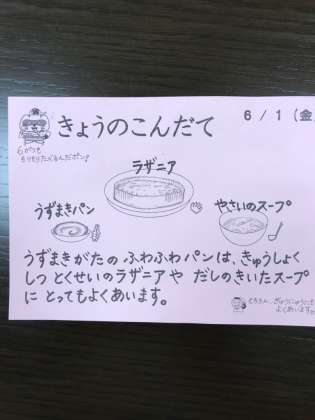 きょうのこんだて
6 / 1 (金
6がつも
もりもりたべるんだポン♪
ラザニア
うずまきパン
やさいのスープ
うずまきがたの ふわふわパンは、きゅうしょく
しつ とくせいのラザニアや だしのきいたスープ
に とってもよくあいます。
ぎゅうにゅうにも
よくあいますね